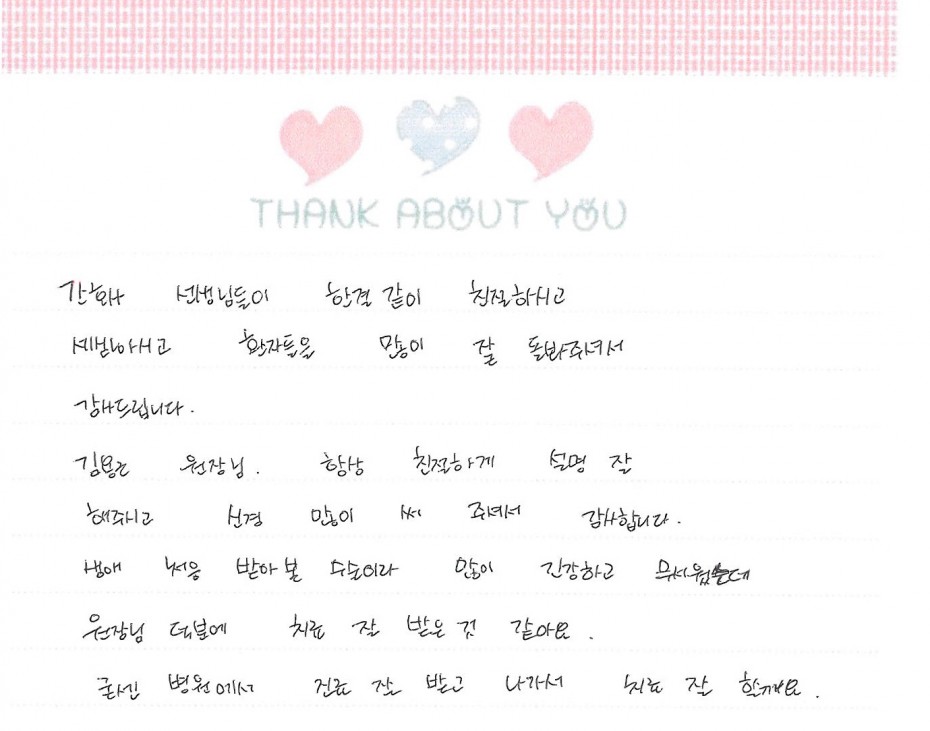 THANK ABOUT YOU
간호사 선생님들이 한결 같이 친절하시고
세밀하시고 환자들을 많이 잘 돌봐주셔서
감사드립니다.
김용근 원장님. 항상 친절하게 설명 잘
해주시고 신경 많이 써 주셔서 감사합니다.
생애 처음 받아 볼 수술이라 많이 긴장하고 무서웠는데
원장님 덕분에 치료 잘 받은 것 같아요.
굳센 병원에서 진료 잘 받고 나가서 치료 잘 할께요.